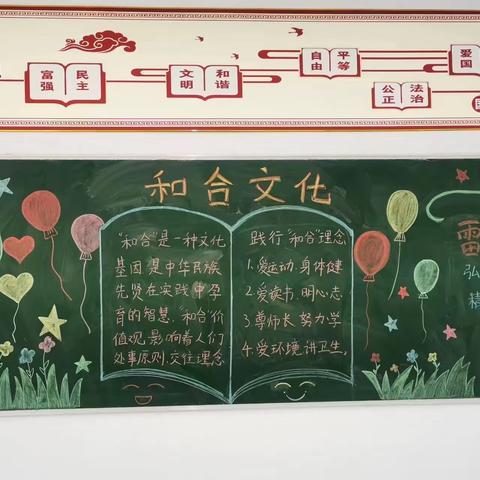 富强 民主
文明 和谐
自由 平等
公正 法治
爱国
和合文化
"和合"是一种文化
基因是中华民族
先贤在实践中孕
育的智慧,和合价
值观,影响着人们
处事原则,交往理念
践行"和合"理念
1.爱运动,身体健
2.爱读书,明心志
3.尊师长,努力学
4.爱环境,讲卫生,
雷
弘
精